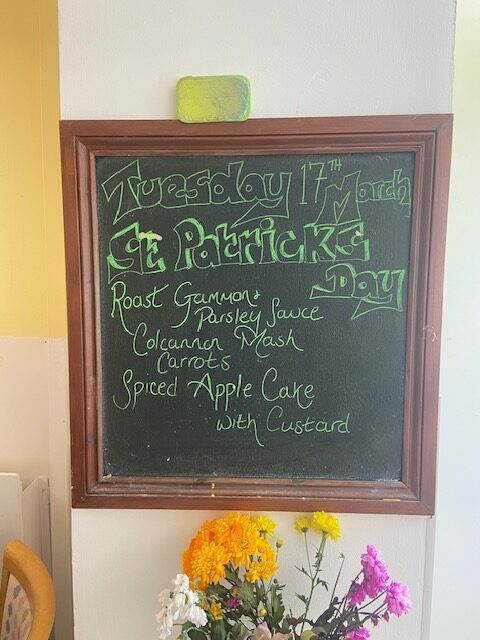 Tuesday 17TH March
St Patricks
Day
Roast Gammon +
Parsley Sauce
Colcannon Mash
Carrots
Spiced Apple Cake
with Custard